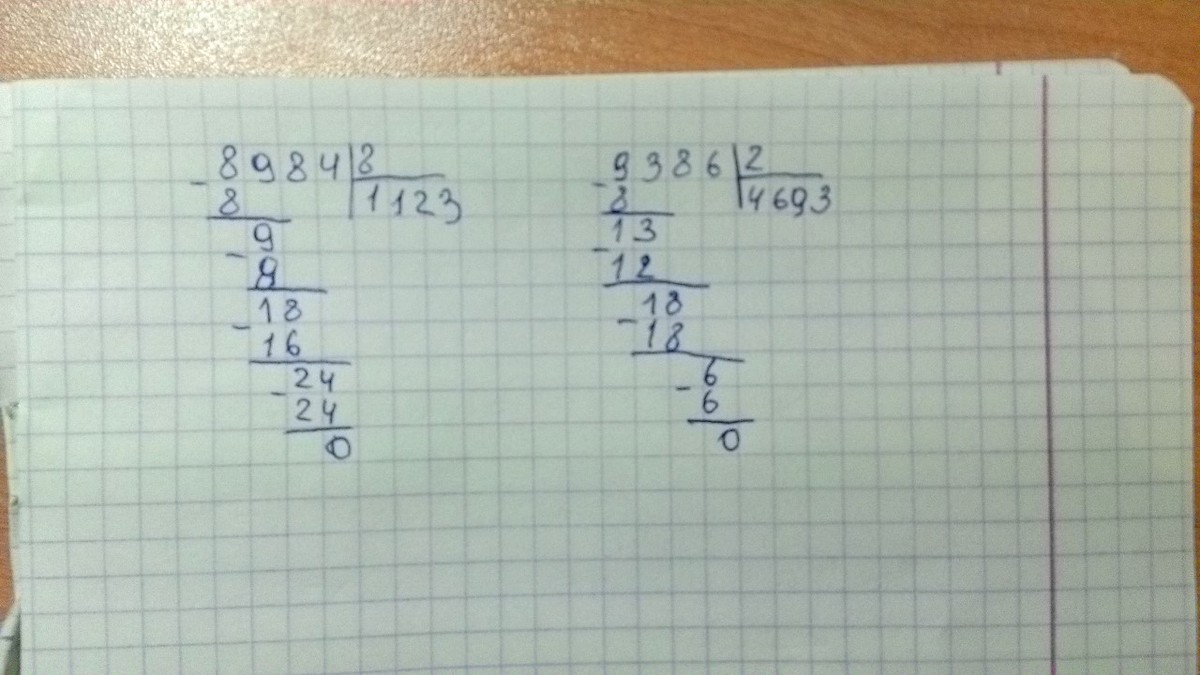 8984|8
- 8 |1123
- 9
8
18
- 16
- 24
24
0
9386|2
- 8 |4693
13
- 12
18
- 18
6
- 6
0